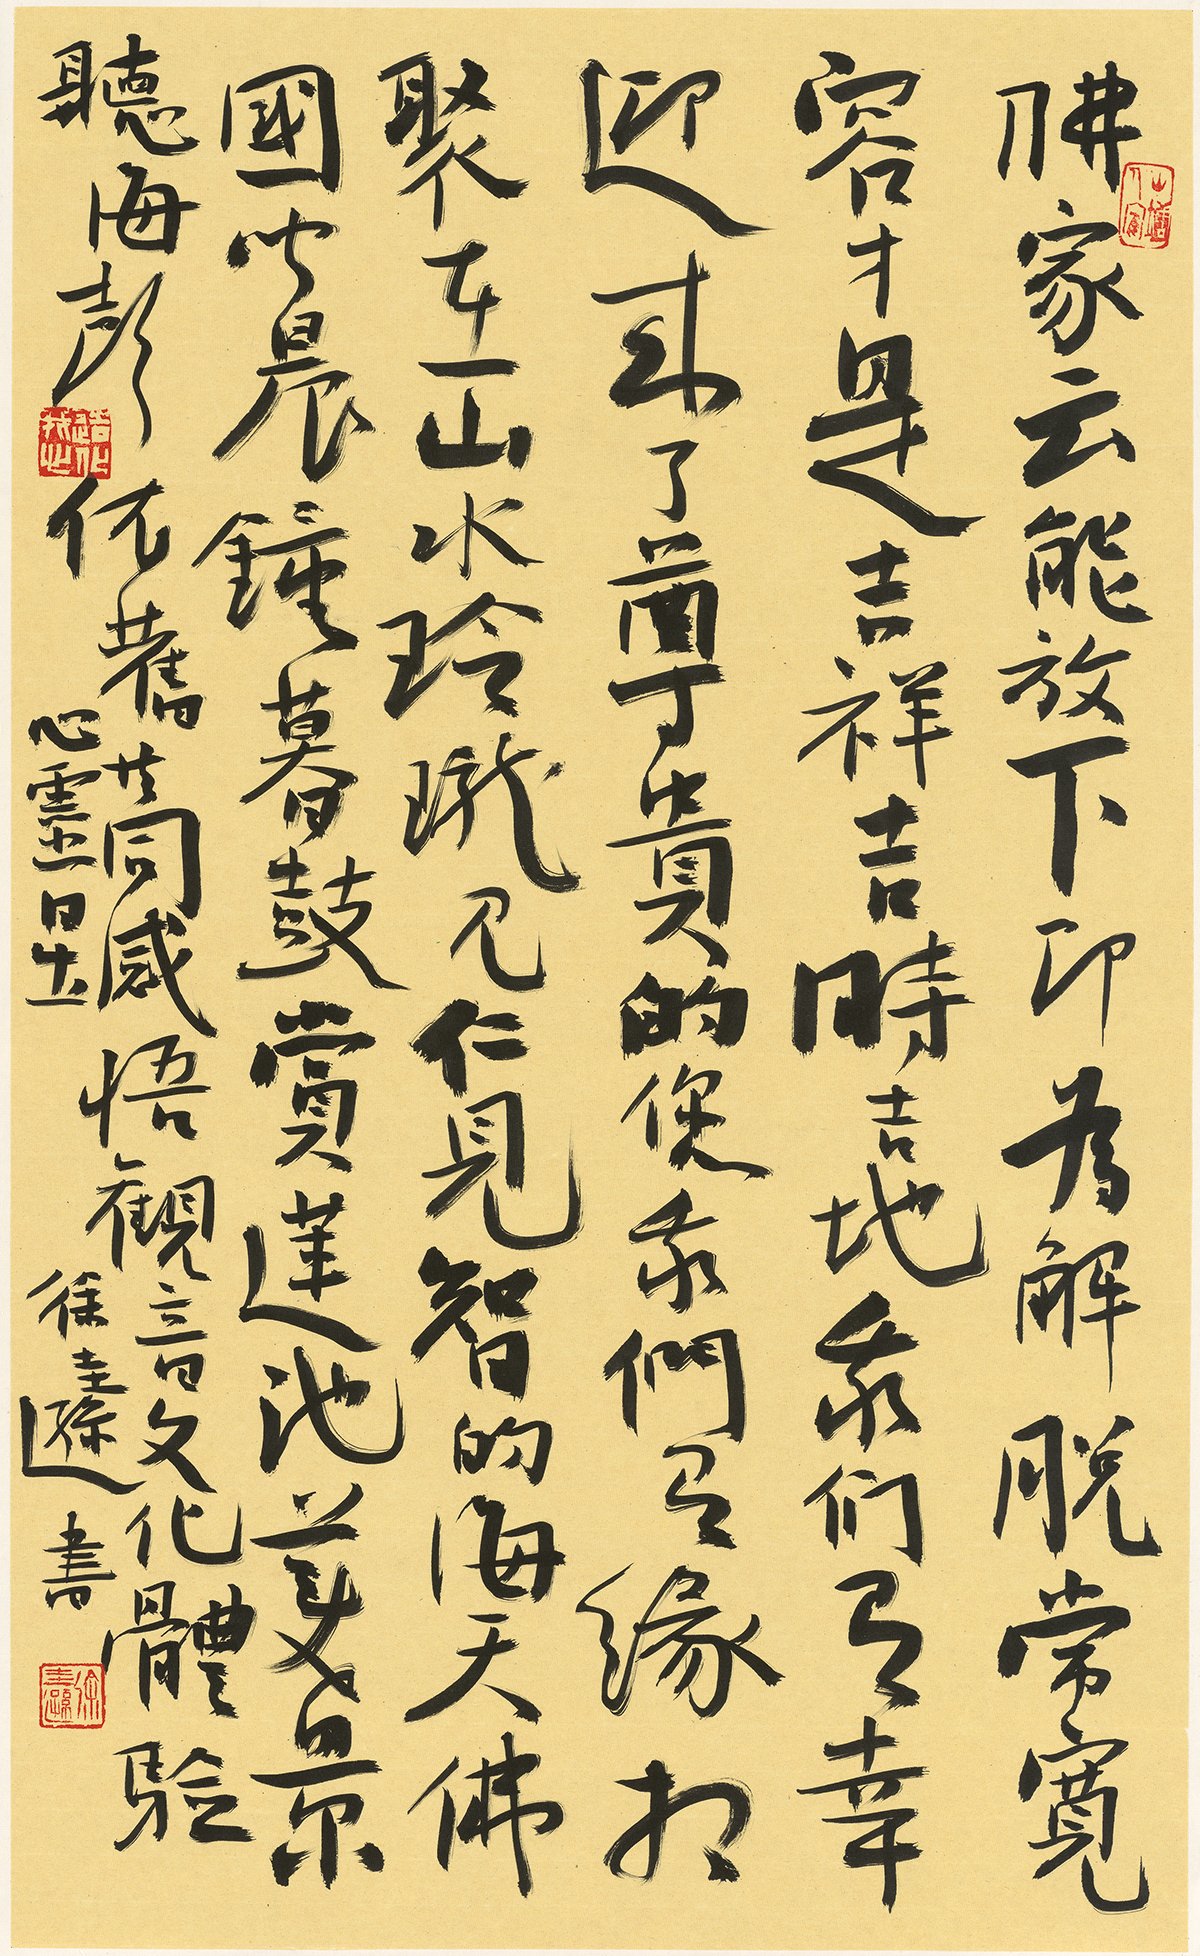 佛家云能放下即為解脫常寬
容才是吉祥吉時吉地我们有幸
迎来了尊貴的您我們有緣相
聚在山水玲瓏见仁見智的海天佛
國听晨鐘暮鼓賞蓮池美景
聽海彭依舊共同感悟觀音文化體驗
心靈日出 徐圭遜書